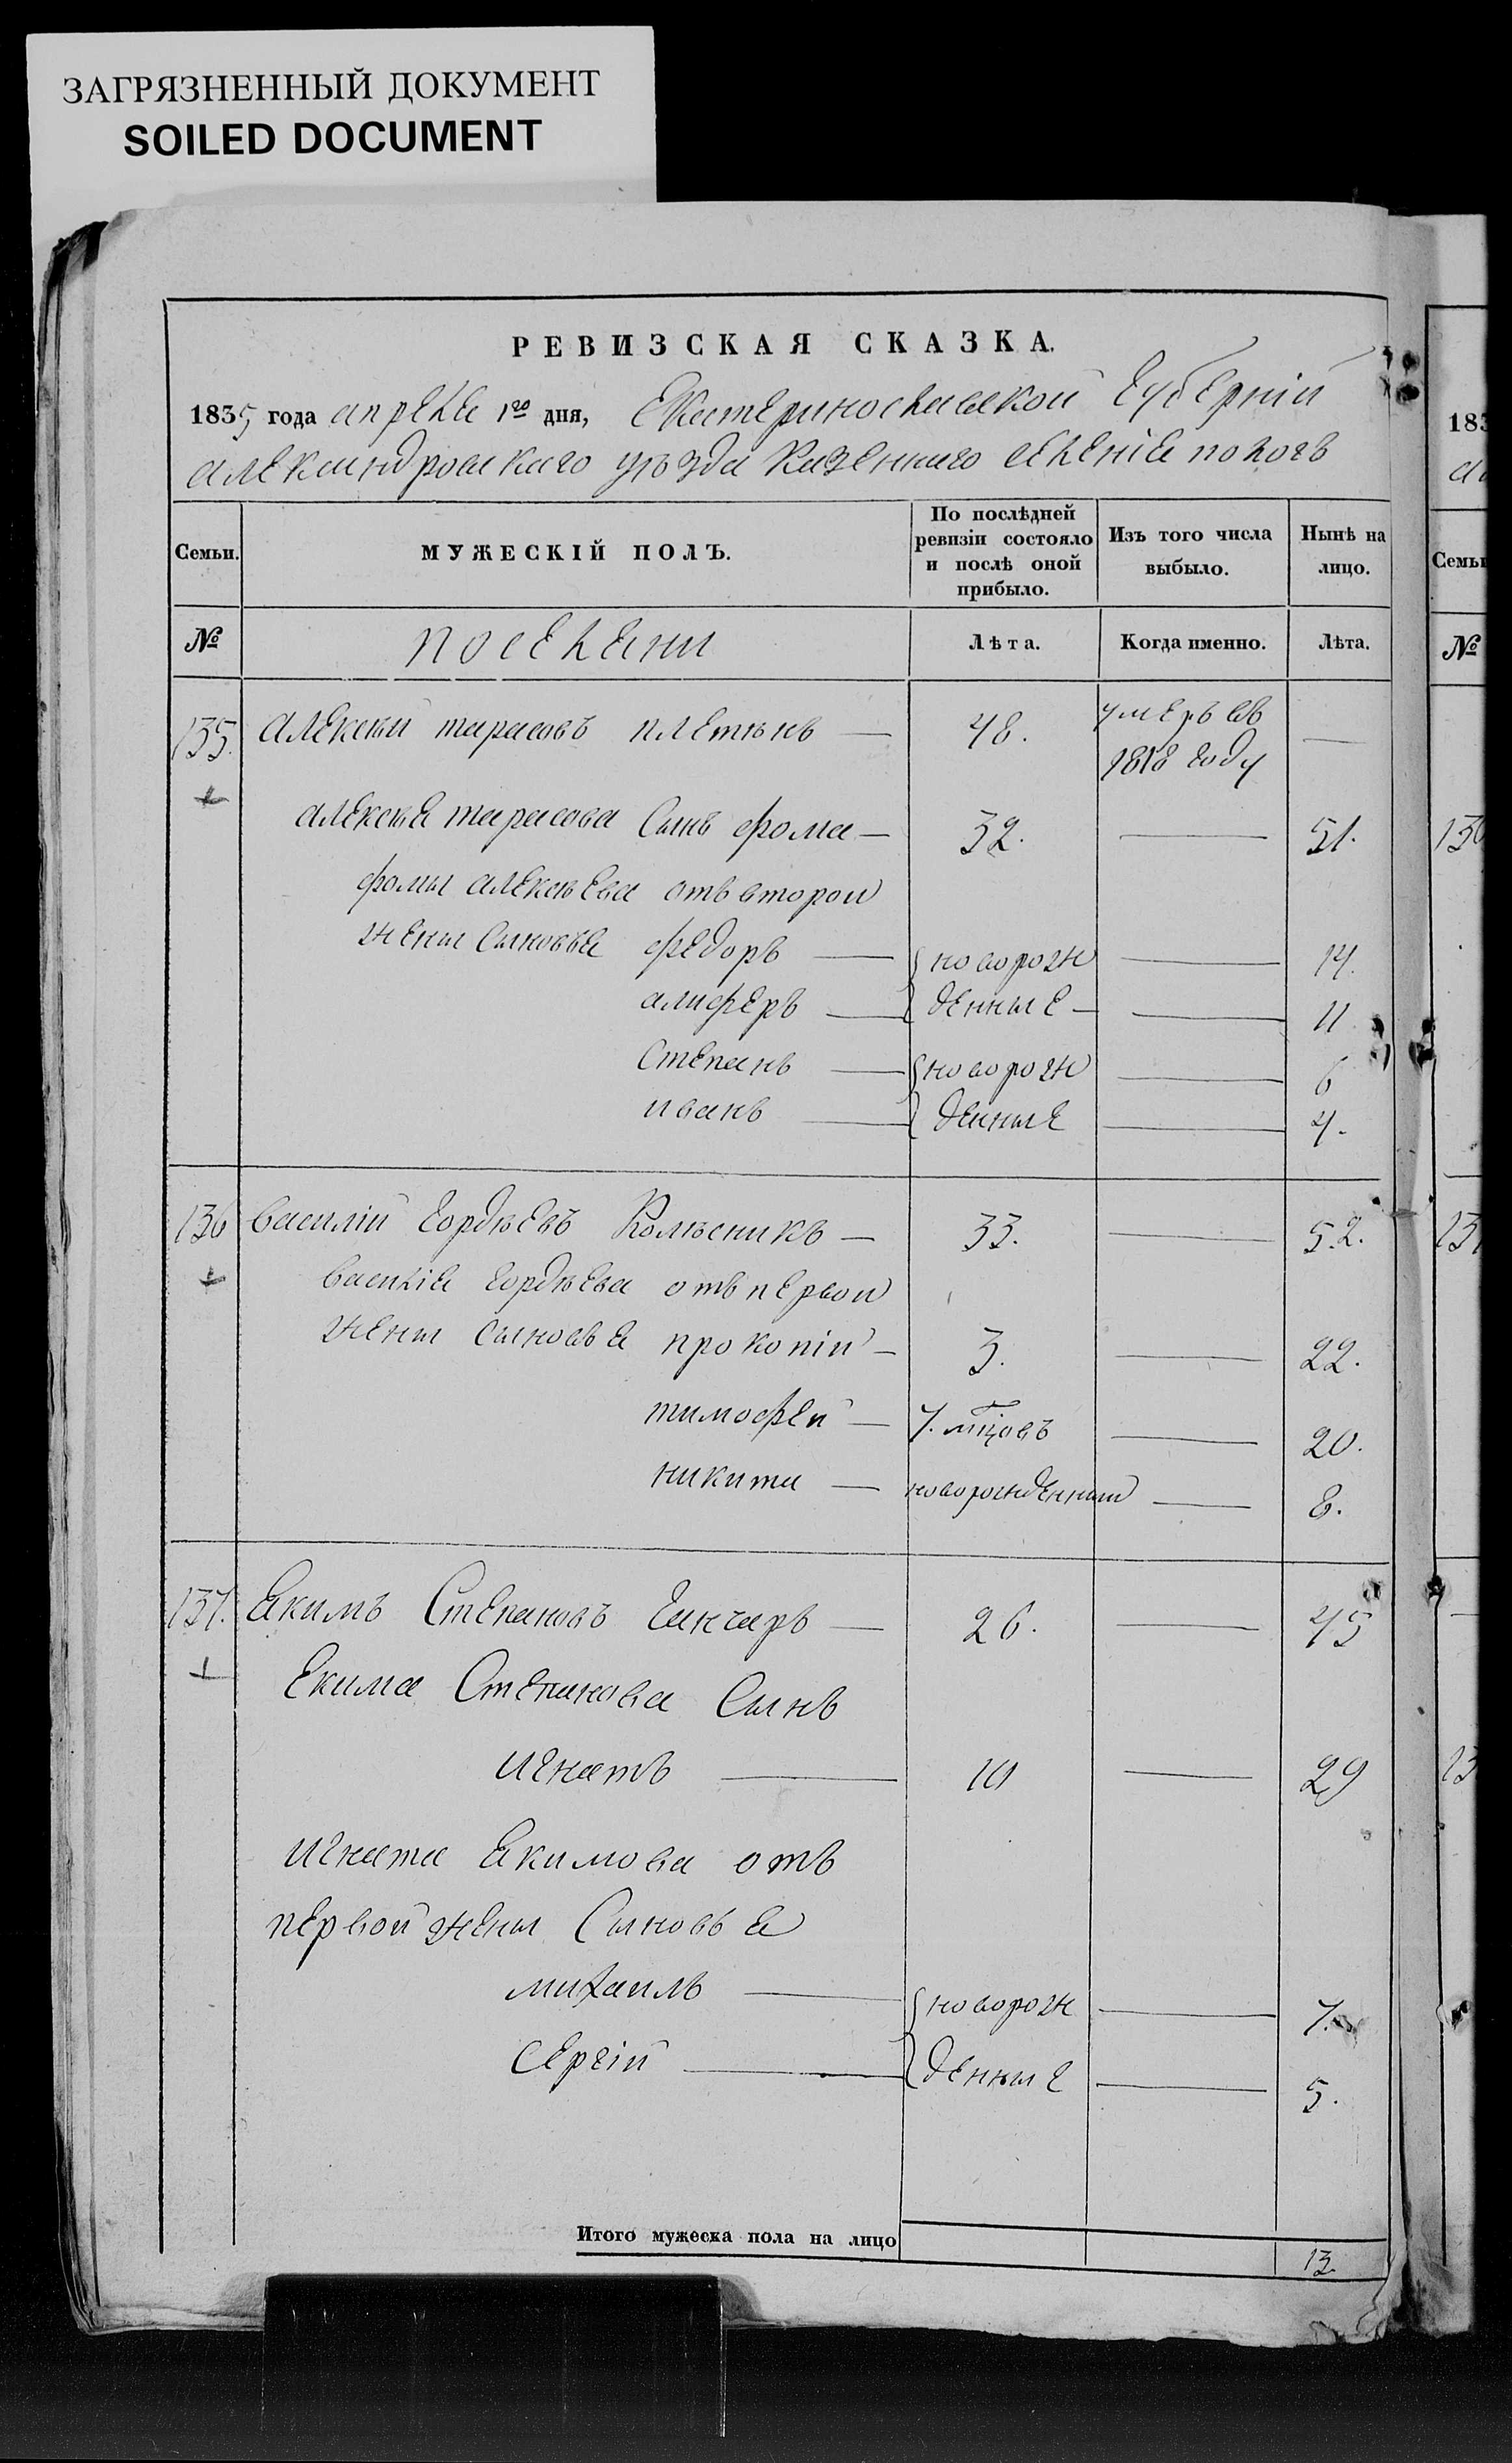 ЗАГРЯЗНЕННЫЙ ДОКУМЕНТ
SOILED DOCUMENT
РЕВИЗСКАЯ СКАЗКА.
1835 года апреля 1го дня, Екатеринославской Губернiи
александровскаго уѣзда Казеннаго селенiя пологъ
Семьи. МУЖЕСКIЙ ПОЛЪ. По послѣдней ревизiи состояло и послѣ оной прибыло. Изъ того числа выбыло. Нынѣ на лицо.
№ поселяни Лѣта. Когда именно. Лѣта.
135. алексѣй тарасовъ 48. умеръ въ 1818 году —
алексѣя тарасова Сынъ фома — 32. — 51.
фомы алексѣева отъ второй
жены Сыновья федоръ — новорож — 14.
алиферъ — денные — — 11
Степанъ — новорож — 6
иванъ — денные — 4.
136 василiй гордѣевъ Колѣсникъ — 33. — 52.
василiя гордѣева отъ первой
жены сыновья прокопiй — 3. — 22.
тимофей — 7. мцовъ — 20.
никита — новорожденный — 8.
137. Якимъ Степановъ ганчаръ — 26. — 45
Екима Степанова Сынъ
игнатъ — 10 — 29
игната Якимова отъ
первой жены Сыновья
михаилъ — новорож — 7.
Сергiй — денные — 5.
Итого мужеска пола на лицо 13.
183
Семьи
№